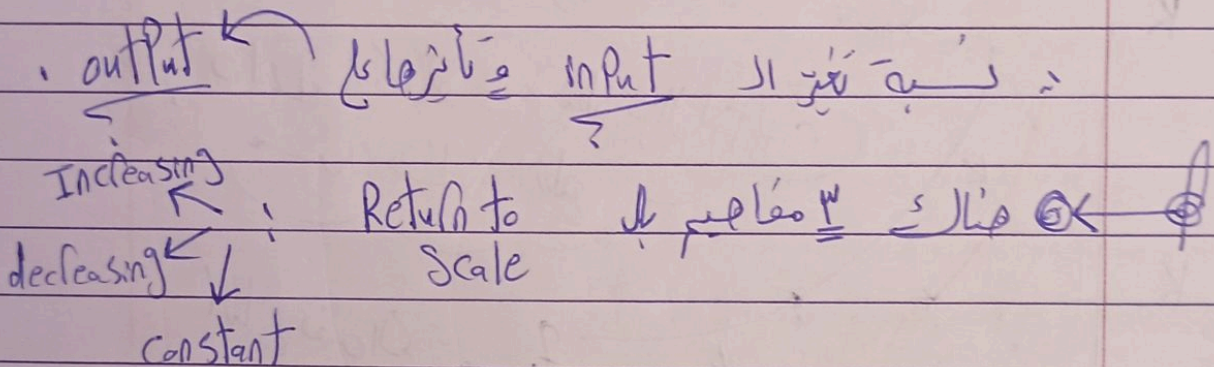 : نسبة تغير ال input و تأثيرها على output .
هناك ٣ مفاهيم لـ Return to Scale :
Increasing
decreasing
constant